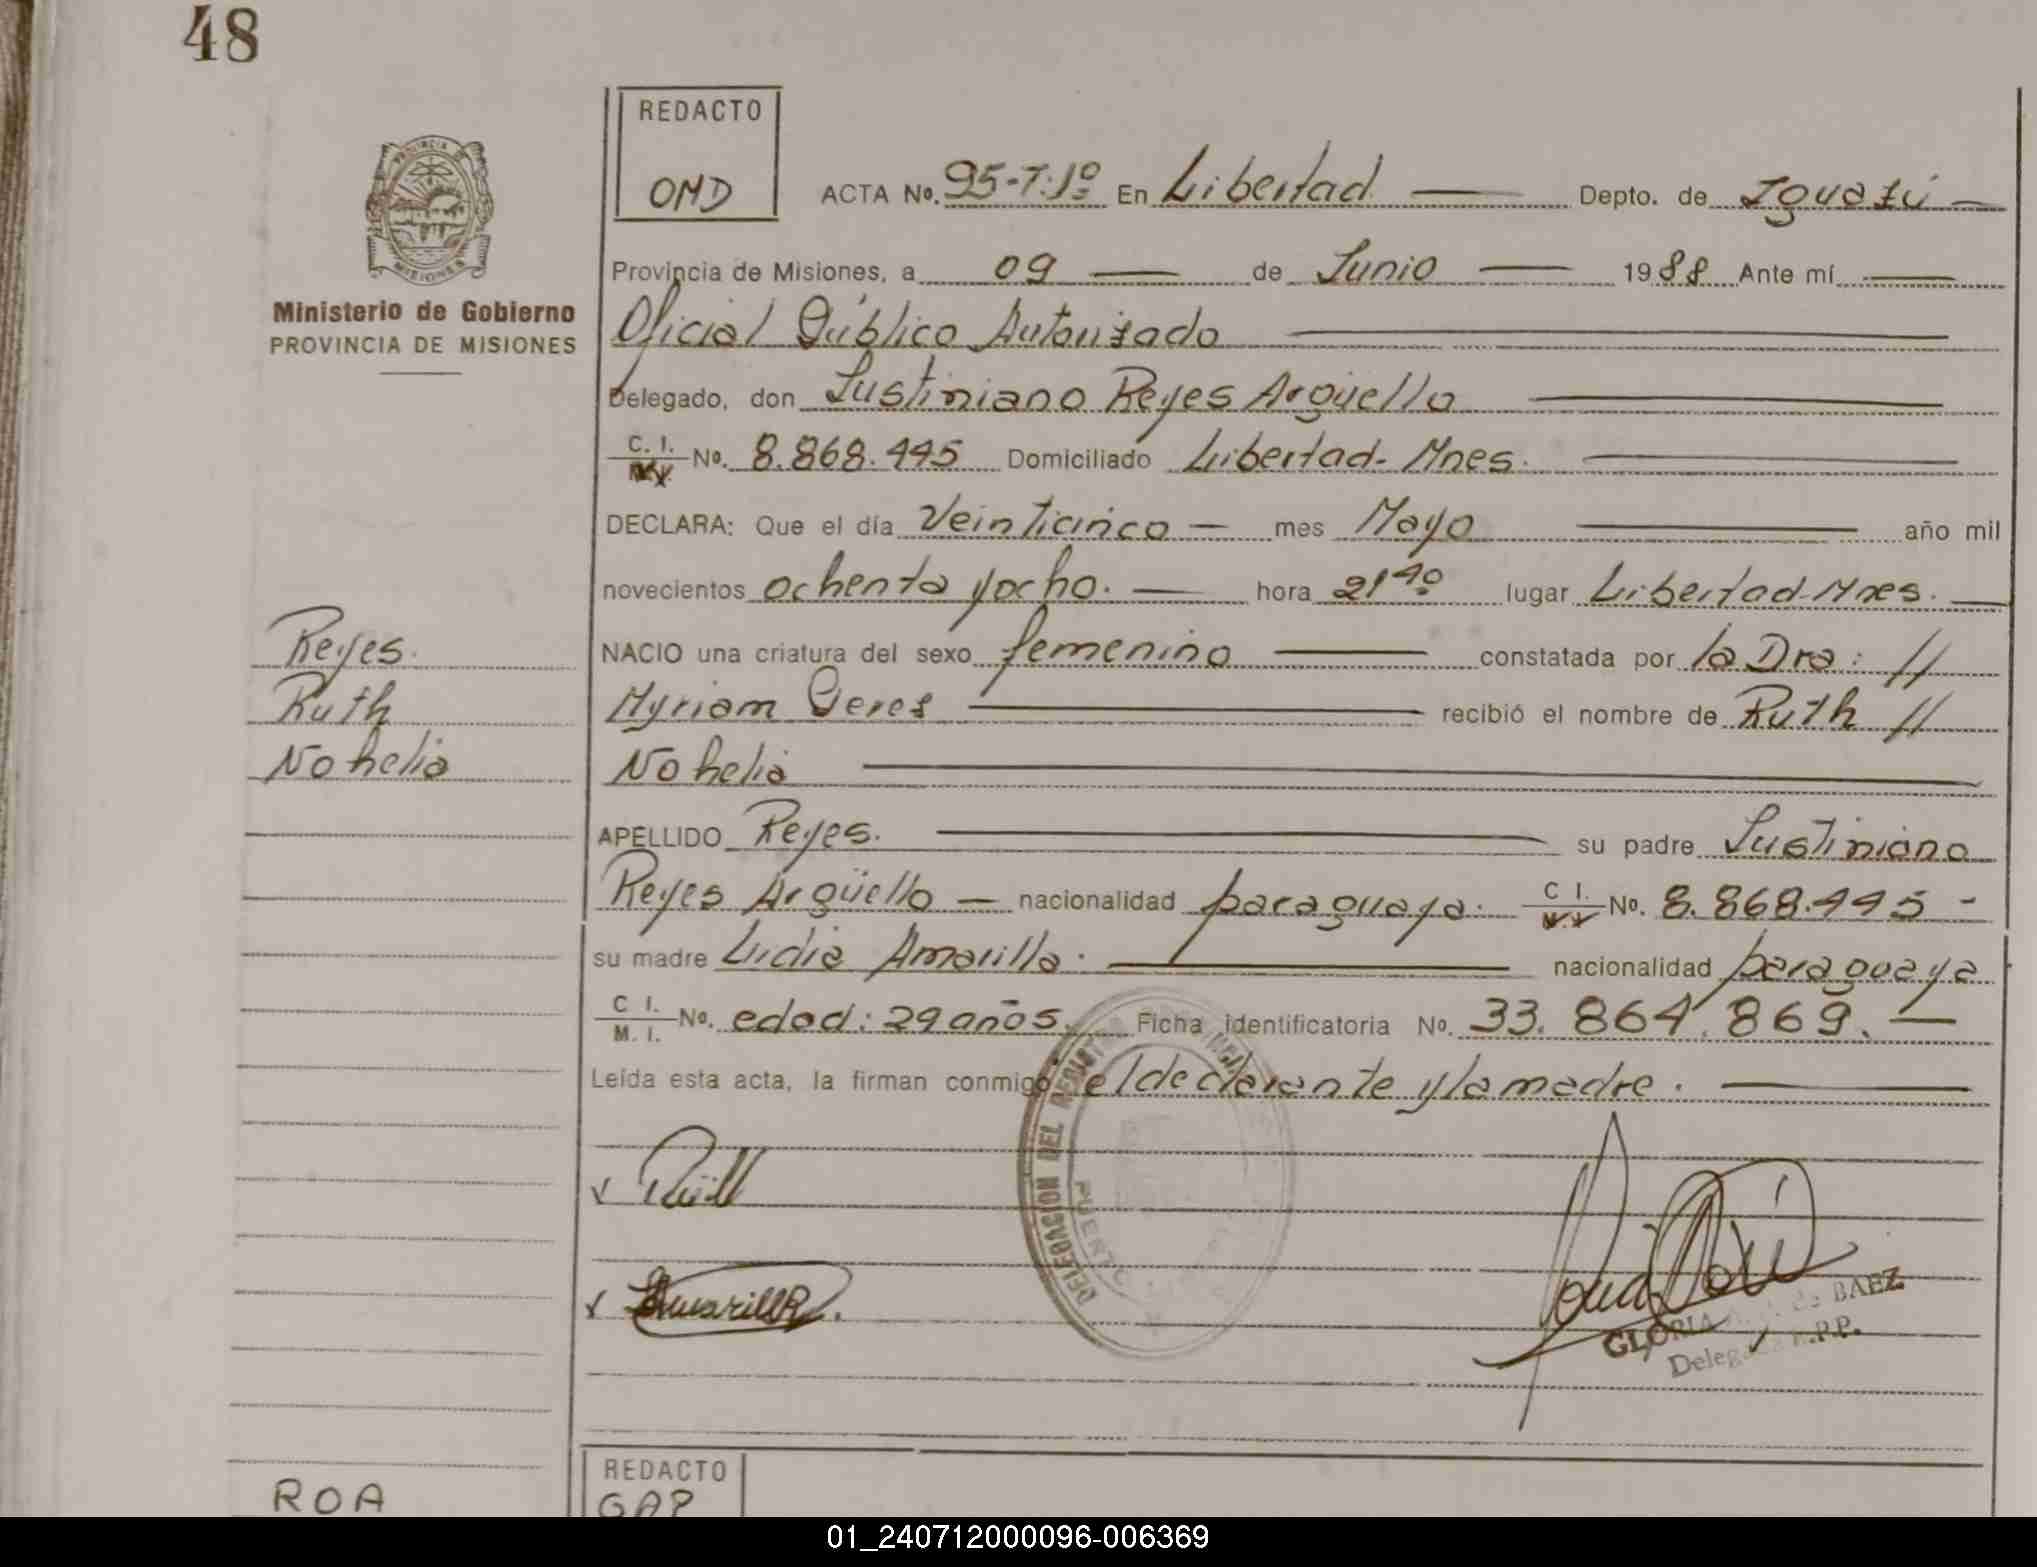 48
REDACTO
OMD
ACTA No. 95-T:1º En Libertad Depto. de Iguazú
PROVINCIA DE
MISIONES
Ministerio de Gobierno
PROVINCIA DE MISIONES
Provincia de Misiones, a 09 de Junio 1988 Ante mí
Oficial Público Autorizado
Delegado, don Justiniano Reyes Argüello
C. I. No. 8.868.445 Domiciliado Libertad-Mnes.
DECLARA: Que el día Veinticinco mes Mayo año mil
novecientos ochenta y ocho. hora 21 40 lugar Libertad-Mnes.
Reyes.
Ruth
Nohelia
NACIO una criatura del sexo femenino constatada por la Dra: //
Myriam recibió el nombre de Ruth //
Nohelia
APELLIDO Reyes. su padre Justiniano
Reyes Argüello nacionalidad paraguaya. C I. No. 8.868.445 -
su madre Lidia Amarilla. nacionalidad paraguaya
C I.
M. I. No. edad: 29 años. Ficha identificatoria No. 33.864.869.
Leída esta acta, la firman conmigo el declarante y la madre.
DELEGACION DEL REGISTRO
PUERTO
GLORIA de BAEZ
ROA
REDACTO
GAP
01_240712000096-006369